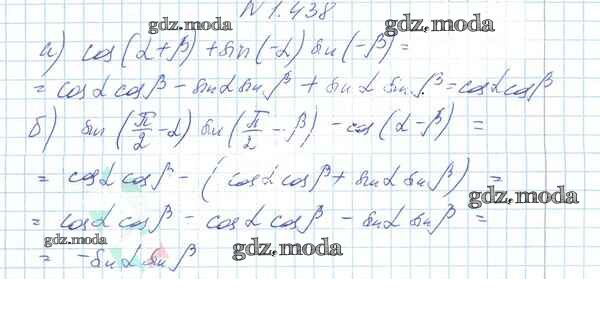 N 1.438
gdz.moda
gdz.moda
а) cos(α+β) + sin(-α) sin(-β) =
= cosα cosβ - sinα sinβ + sinα sinβ = cosα cosβ
б) sin(π/2 - α) sin(π/2 - β) - cos(α-β) =
= cosα cosβ - (cosα cosβ + sinα sinβ) =
gdz.moda
= cosα cosβ - cosα cosβ - sinα sinβ =
gdz.moda
gdz.moda
= - sinα sinβ